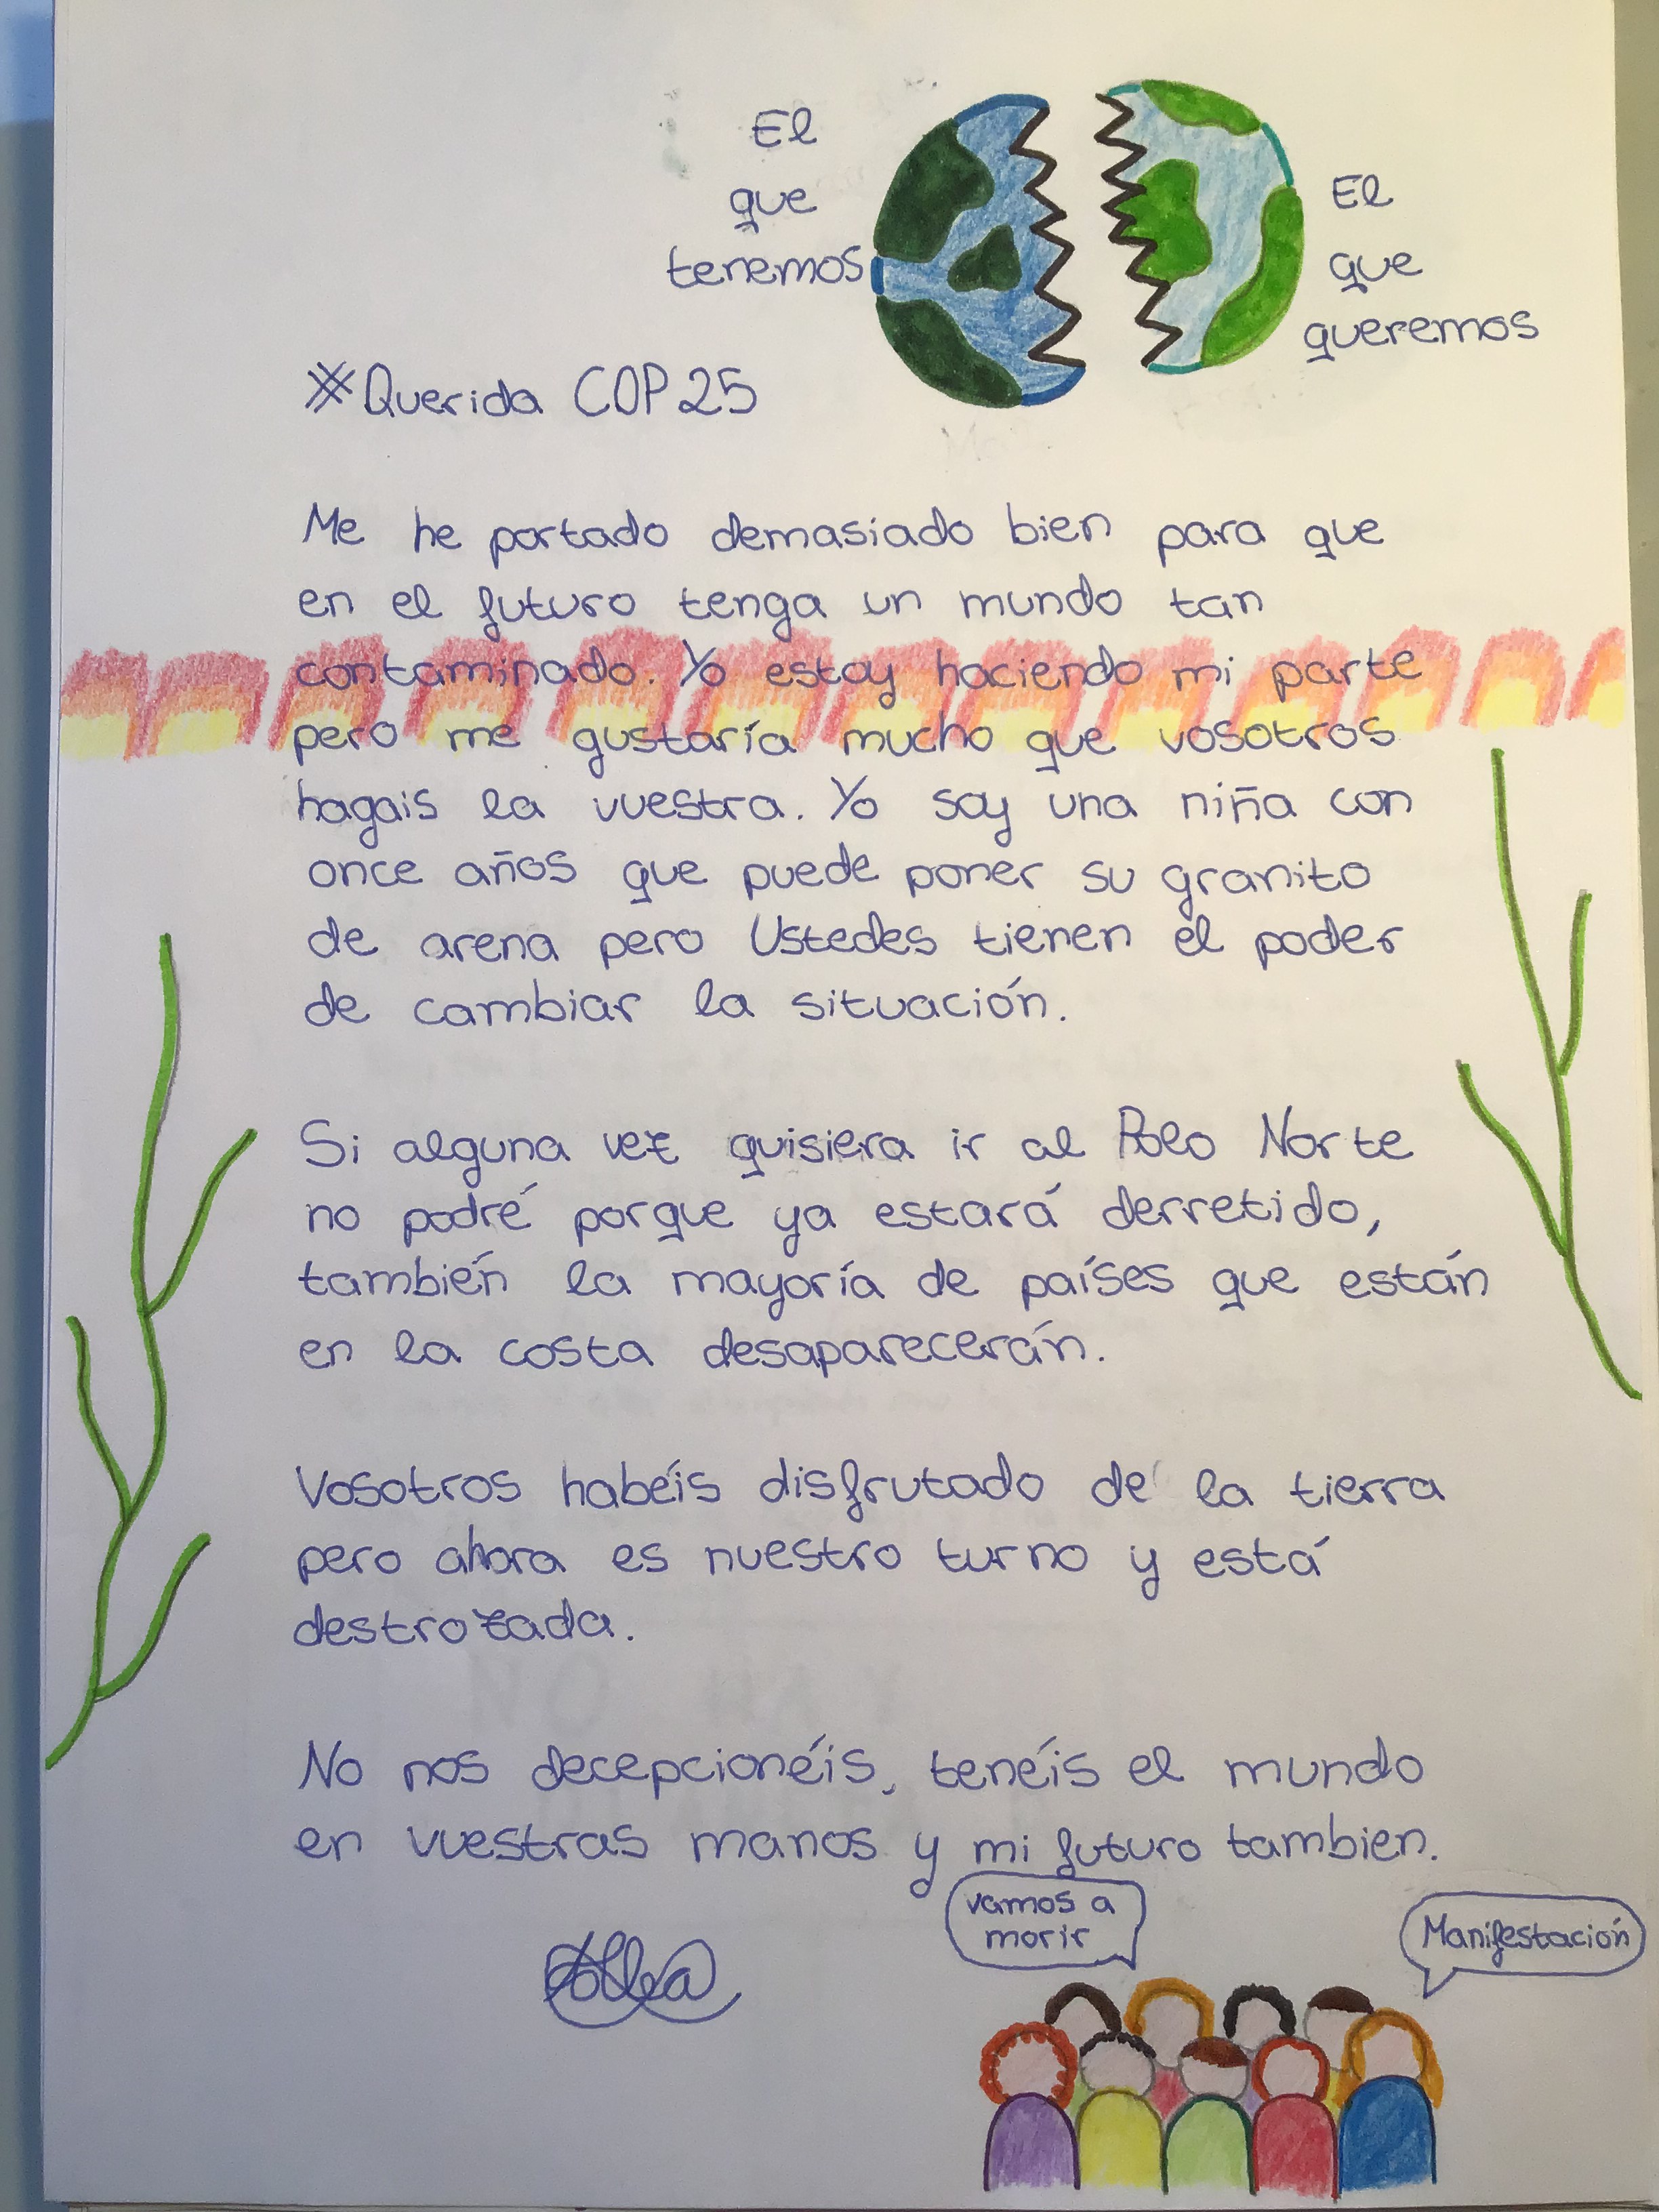 El
que
tenemos
El
que
queremos
#Querida COP25
Me he portado demasiado bien para que
en el futuro tenga un mundo tan
contaminado. Yo estoy haciendo mi parte
pero me gustaría mucho que vosotros
hagais la vuestra. Yo soy una niña con
once años que puede poner su granito
de arena pero Ustedes tienen el poder
de cambiar la situación.
Si alguna vez quisiera ir al Polo Norte
no podré porque ya estará derretido,
también la mayoría de países que están
en la costa desaparecerán.
Vosotros habéis disfrutado de la tierra
pero ahora es nuestro turno y está
destrozada.
No nos decepcionéis, tenéis el mundo
en vuestras manos y mi futuro tambien.
vamos a
morir
Manifestación